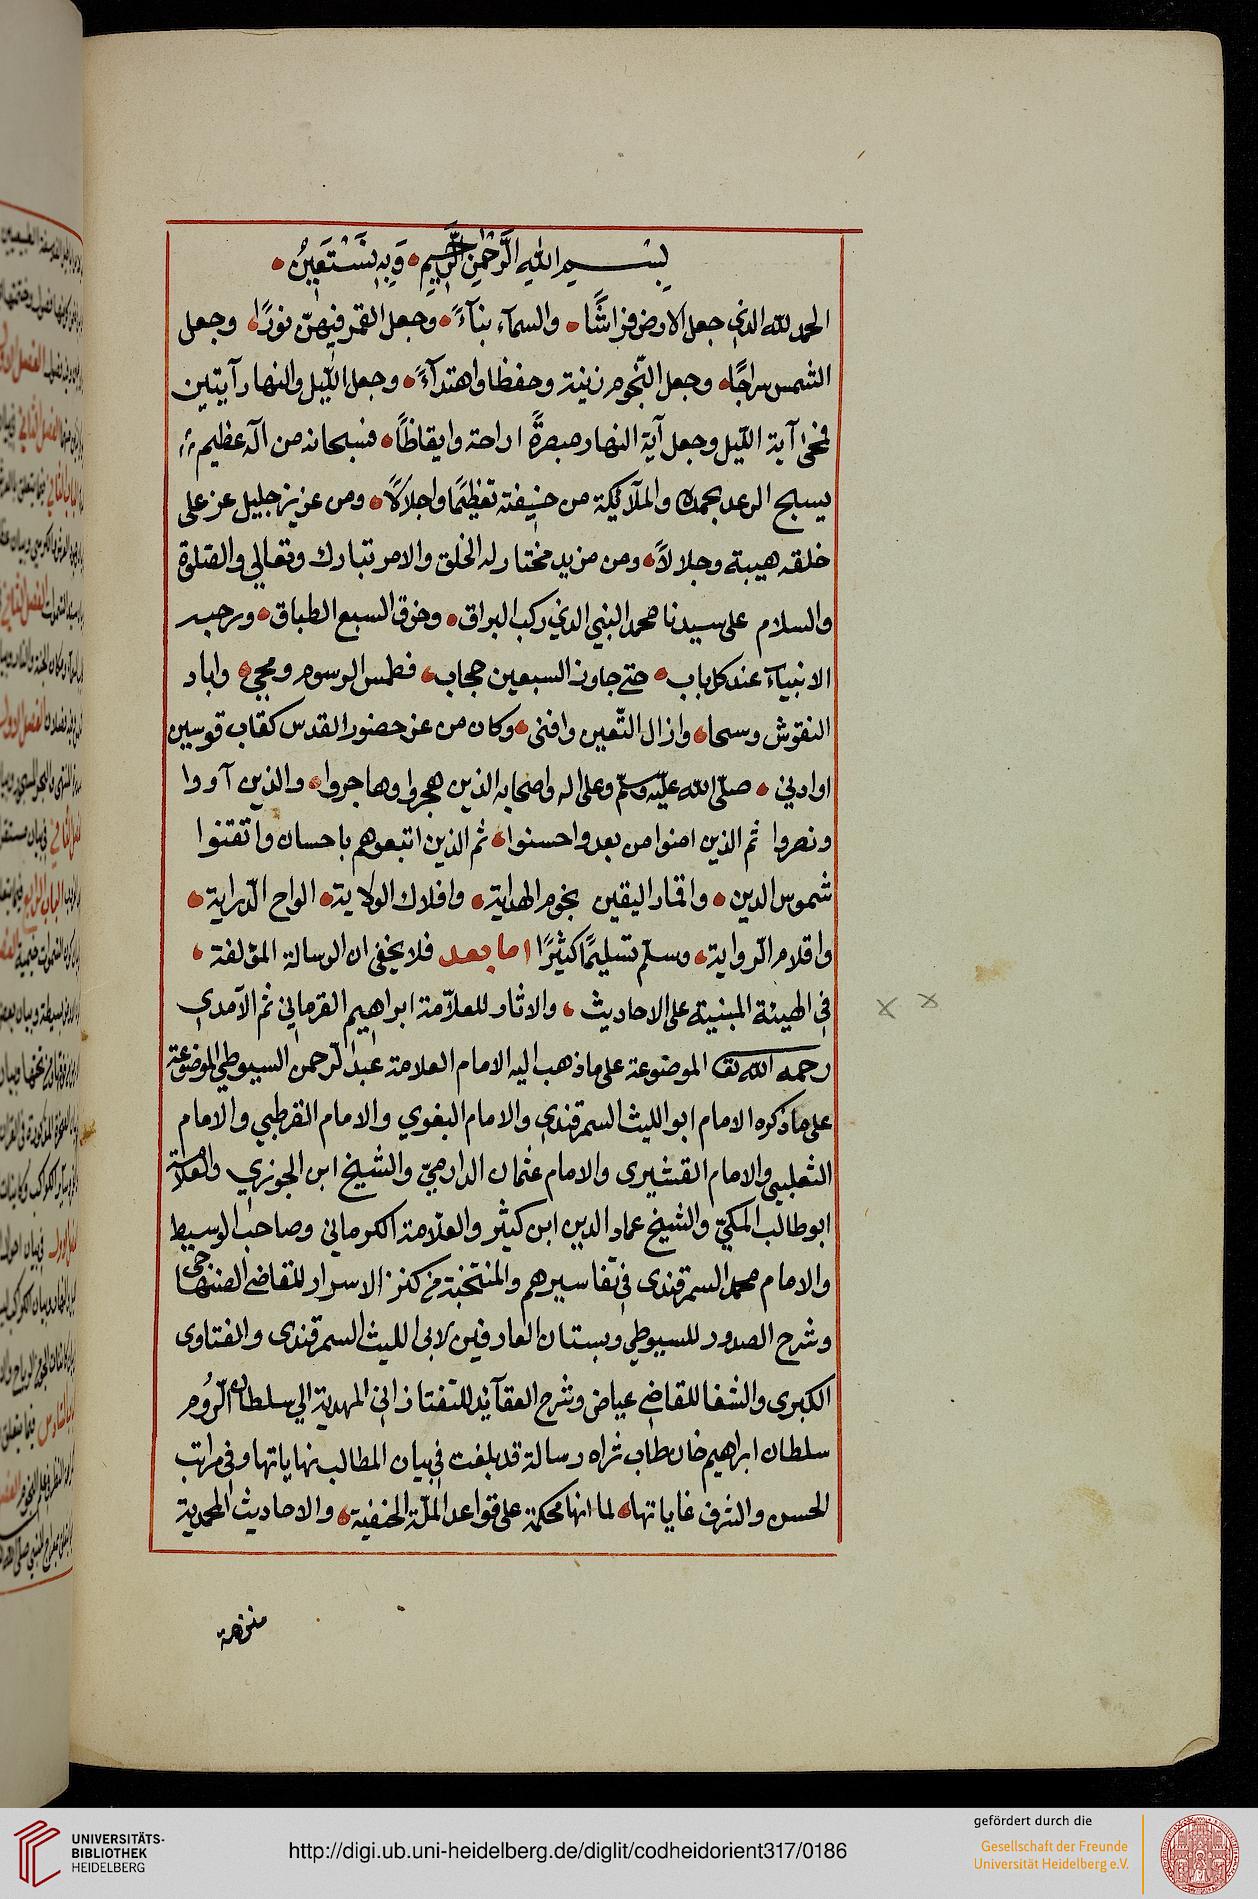 بسم الله الرحمن الرحيم • وَبِهِ نَسْتَعِينُ •
الحمد لله الذي جعل الارض فراشًا • والسمآء بنآءً • وجعل القمر فيهنّ نورًا • وجعل
الشمس سراجًا • وجعل النّجوم زينة وحفظا واهتدآءً • وجعل الليل والنهار آيتين
فمحى آية الليل وجعل آية النهار مبصرةً اراحة وايقاظًا • فسبحانه من اله عظيم
يسبح الرعد بحمده والملآئكة من خيفته تعظيمًا واجلالًا • ومن عزيز جليل عز على
خلقه هيبة وجلالاً • ومن مزيد مختار له الخلق والامر تبارك وتعالى والصّلوة
والسلام على سيدنا محمد النبي الذي ركب البراق • وخرق السبع الطباق • ورحبه
الانبيآء عند كل باب • حتى جاوز السبعين حجاب • فطمس الرسوم ومحى • واباد
النقوش وسحا • وازال التّعين وافنى • وكان من عز حضور القدس كقاب قوسين
او ادنى • صلّى الله عليه وسلّم وعلى اله واصحابه الذين هجروا وهاجروا • والذين آووا
ونصروا ثم الذين امنوا من بعد واحسنوا • ثم الذين اتبعوهم باحسان واتقنوا
شموس الدين • واقمار اليقين نجوم الهداية • وافلاك الولاية • الواح الدّراية •
واقلام الرّواية • وسلّم تسليمًا كثيرًا اما بعد فلا يخفى ان الرسالة المؤلفة •
في الهيئة المبنية على الاحاديث • والاثار للعلاّمة ابراهيم القرماني ثم الآمدي
رحمه الله تعا الموضوعة على ما ذهب اليه الامام العلامة عبد الرّحمن السيوطي الموضوعة
على ما ذكره الامام ابو الليث السمرقندي والامام البغوي والامام القرطبي والامام
الثعلبي والامام القشيرى والامام عثمان الدارميّ والشيخ ابن الجوزي والعلامة
ابو طالب المكيّ والشيخ عماد الدين ابن كثير والعلّامة الكرماني وصاحب الوسيط
والامام محمد السمرقندى في تفاسيرهم والمنتخبة من كنز الاسرار للقاضي الصنهاجى
وشرح الصدور للسيوطي وبستان العارفين لابى الليث السمرقندى والفتاوى
الكبرى والشفا للقاضي عياض وشرح العقآئد للتفتازانى المهدية الي سلطان الرّوم
سلطان ابراهيم خان طاب ثراه رسالة قد بلغت في بيان المطالب نهاياتها وفى مراتب
الحسن والشرف غاياتها • لما انها محكمة على قواعد الملّة الحنفية • والاحاديث المحمدية
UNIVERSITÄTS-
BIBLIOTHEK
HEIDELBERG
http://digi.ub.uni-heidelberg.de/diglit/codheidorient317/0186
gefördert durch die
Gesellschaft der Freunde
Universität Heidelberg e.V.